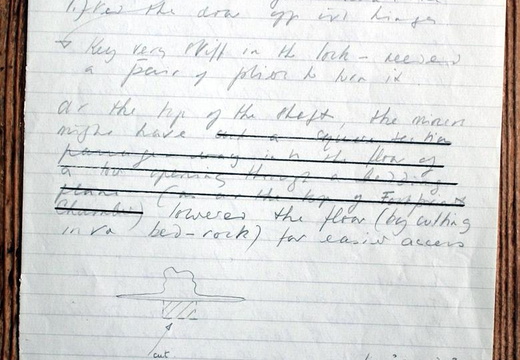 lifted the door off its hinges
Key very stiff in the lock – needed
a pair of pliers to turn it
At the top of the shaft, the miners
might have cut a square section
passage way into the floor of
a opening through a bedding
plane (as at the top of Footprints
Chamber) lowered the floor (by cutting
into bed-rock) for easier access
cut